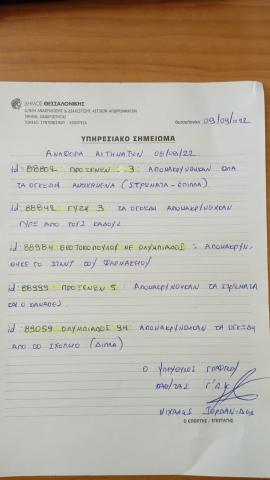 ΔΗΜΟΣ ΘΕΣΣΑΛΟΝΙΚΗΣ
Δ/ΝΣΗ ΑΝΑΚΥΚΛΩΣΗΣ & ΔΙΑΧΕΙΡΙΣΗΣ ΑΣΤΙΚΩΝ ΑΠΟΡΡΙΜΜΑΤΩΝ
ΤΜΗΜΑ ΚΑΘΑΡΙΟΤΗΤΑΣ
ΤΟΜΕΑΣ ΣΥΝΤΟΝΙΣΜΟΥ - ΕΠΟΠΤΕΙΑ
Θεσσαλονίκη, 09/09/22
ΥΠΗΡΕΣΙΑΚΟ ΣΗΜΕΙΩΜΑ
ΑΝΑΦΟΡΑ ΑΙΤΗΜΑΤΩΝ 08/09/22
id: 88802 ΠΡΟΞΕΝΩΝ 3: ΑΠΟΜΑΚΡΥΝΘΗΚΑΝ ΟΛΑ
ΤΑ ΟΓΚΩΔΗ ΑΝΤΙΚΕΙΜΕΝΑ (ΣΤΡΩΜΑΤΑ-ΕΠΙΠΛΑ)
id: 88842 ΓΥΖΗ 3: ΤΑ ΟΓΚΩΔΗ ΑΠΟΜΑΚΡΥΝΘΗΚΑΝ
ΓΥΡΩ ΑΠΟ ΤΟΥΣ ΚΑΔΟΥΣ
id: 88984 ΘΕΟΤΟΚΟΠΟΥΛΟΥ ΜΕ ΟΛΥΜΠΙΑΔΟΣ: ΑΠΟΜΑΚΡΥΝ-
ΘΗΚΕ ΤΟ ΣΤΑΝΤ ΤΟΥ ΦΑΡΜΑΚΕΙΟΥ
id: 88999 ΠΡΟΞΕΝΩΝ 5: ΑΠΟΜΑΚΡΥΝΘΗΚΑΝ ΤΑ ΣΤΡΩΜΑΤΑ
ΚΑΙ Ο ΚΑΝΑΠΕΣ.
id: 89059 ΟΛΥΜΠΙΑΔΟΣ 94 ΑΠΟΜΑΚΡΥΝΘΗΚΑΝ ΤΑ ΟΓΚΩΔΗ
ΑΠΟ ΤΟ ΣΧΟΛΕΙΟ (ΔΙΠΛΑ)
Ο ΥΠΕΥΘΥΝΟΣ ΓΡΑΦΕΙΟΥ
ΚΑΘ/ΤΑΣ Γ'Δ.Κ
ΜΙΧΑΛΗΣ ΙΟΡΔΑΝΙΔΗΣ
Ο ΕΠΟΠΤΗΣ / ΕΠΙΣΤΑΤΗΣ